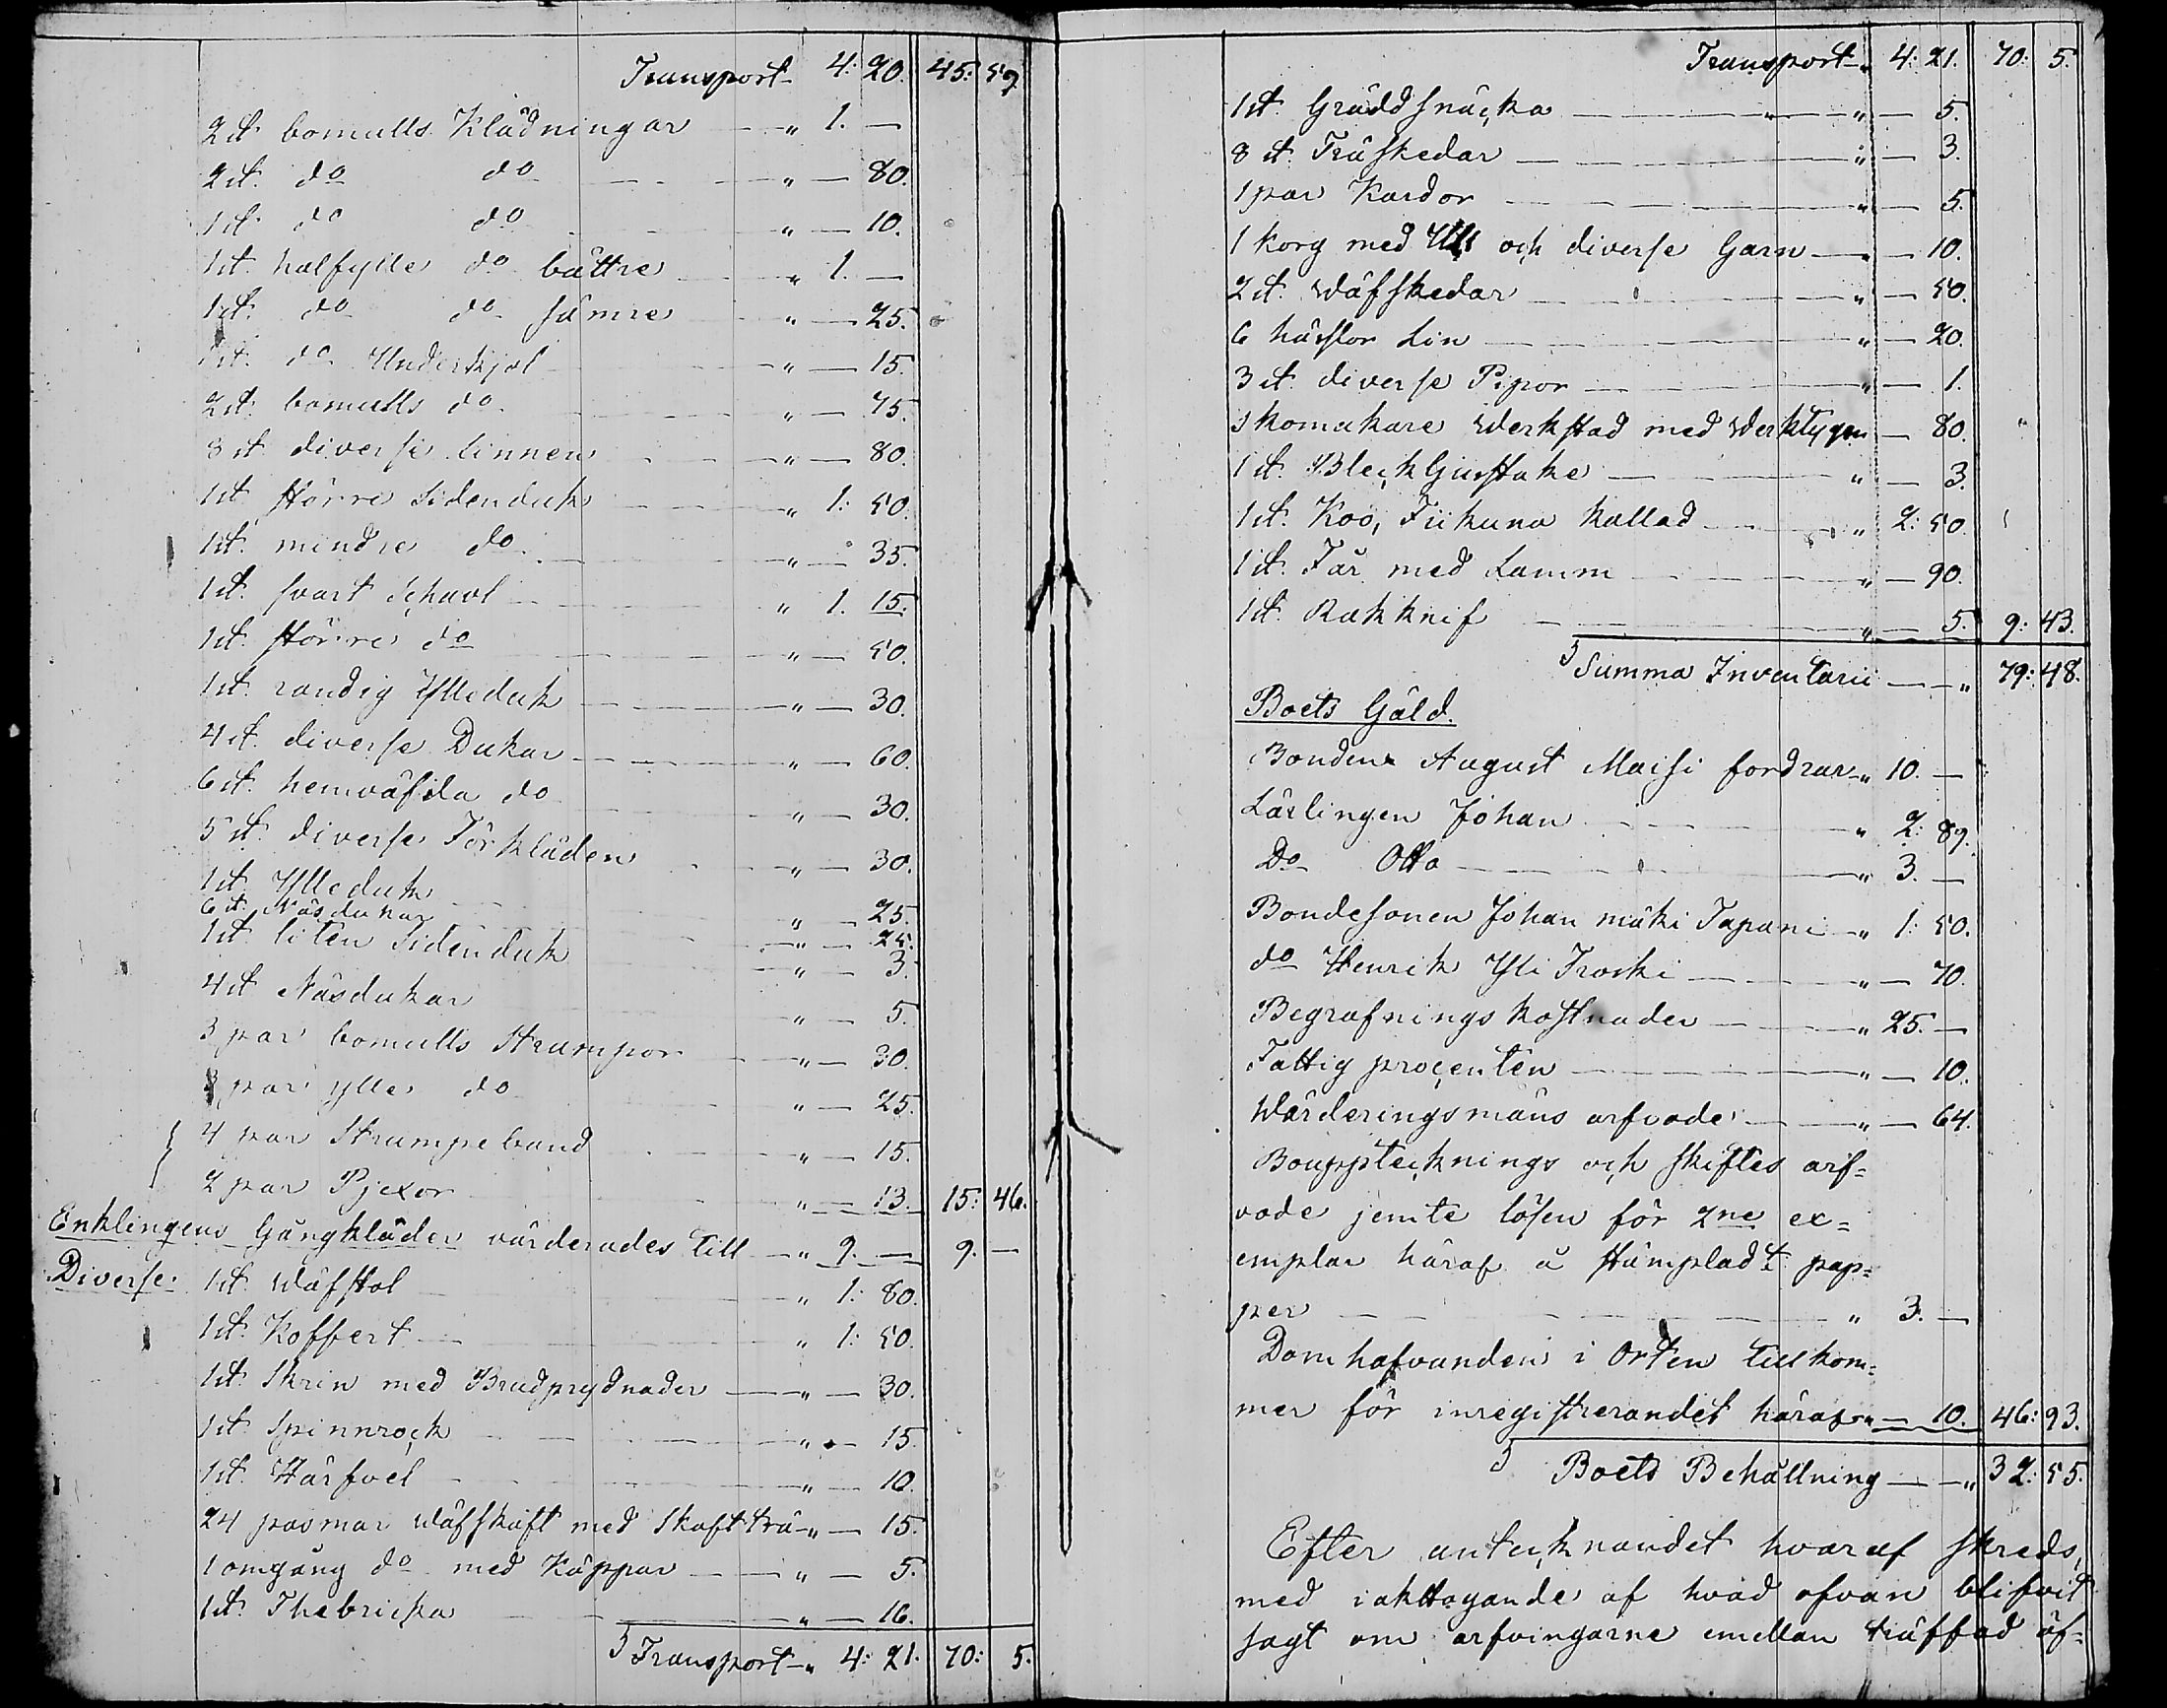 Transport 4: 20. 45: 59
2 st. bomulls Klädningar — " 1. —
2 st. do do — " — 80.
1 st. do do — " — 10.
1 st. halfylle do bättre — " 1. —
1 st. do do sämre — " — 25.
1 st. do Underkjol — " — 15.
2 st. bomulls do — " — 75.
8 st. diverse linnen — " — 80.
1 st. större Sidenduk — " 1: 50.
1 st. mindre do — " — 35.
1 st. svart Schavl — " 1. 15.
1 st. större do — " — 50.
1 st. randig Ylleduk — " — 30.
4 st. diverse Dukar — " — 60.
6 st. hemväfda do — " — 30.
5 st. diverse Förkläden — " — 30.
1 st. Ylleduk — " — 25.
6 st. Näsdukar — " — 25.
1 st. liten Sidenduk — " — 3.
4 st. Näsdukar — " — 5.
3 par bomulls Strumpor — " — 30.
3 par ylle do — " — 25.
4 par Strumpeband — " — 15.
2 par Pjexor — " — 13. 15: 46.
Enklingens Gångkläder värderades till — " 9. — 9. —
Diverse: 1 st. Wäfstol — " 1: 80.
1 st. Koffert — " 1: 50.
1 st. Skrin med Brudprydnader — " — 30.
1 st. Spinnrock — " — 15.
1 st. Härfvel — " — 10.
24 pasmar Wäfskäft med Skaftträ — " — 15.
1 omgång do med Käppar — " — 5.
1 st. Thebricka — " — 16.
Transport — " 4: 21. 70: 5.
Transport — " 4: 21. 70: 5.
1 st. Gräddsnäcka — " — 5.
8 st. Träskedar — " — 3.
1 par Kardor — " — 5.
1 korg med Ull och diverse Garn — " — 10.
2 st. Wäfskedar — " — 50.
6 härfvor Lin — " — 20.
3 st. diverse Pipor — " — 1.
Skomakare Werkstad med Werktygen — 80.
1 st. Bleckljusstake — " — 3.
1 st. Koo, Fiikuna kallad — " 2: 50.
1 st. Får med Lamm — " — 90.
1 st. Rakknif — " — 5. 9: 43.
Summa Inventarii — " 79: 48.
Boets Gäld.
Bonden August Maisi fordrar — " 10. —
Lärlingen Johan — " 2: 89.
Do Otto — " 3. —
Bondesonen Johan mäki Tapani — " 1: 50.
do Henrik Yli Troski — " — 70.
Begrafnings kostnader — " 25. —
Fattig procenten — " — 10.
Wärderingsmäns arfvode — " — 64.
Bouppteknings och skiftes arf=
vode jemte lösen för 2ne ex=
emplar häraf å stämpladt pap=
per — " 3. —
Domhafvanden i Orten tillkom=
mer för inregistrerandet häraf — " — 10. 46: 93.
Boets Behållning — " 32: 55.
Efter antecknandet hvaraf skreds,
med iakttagande af hvad ofvan blifvit
sagt om arfvingarne emellan träffad öf=